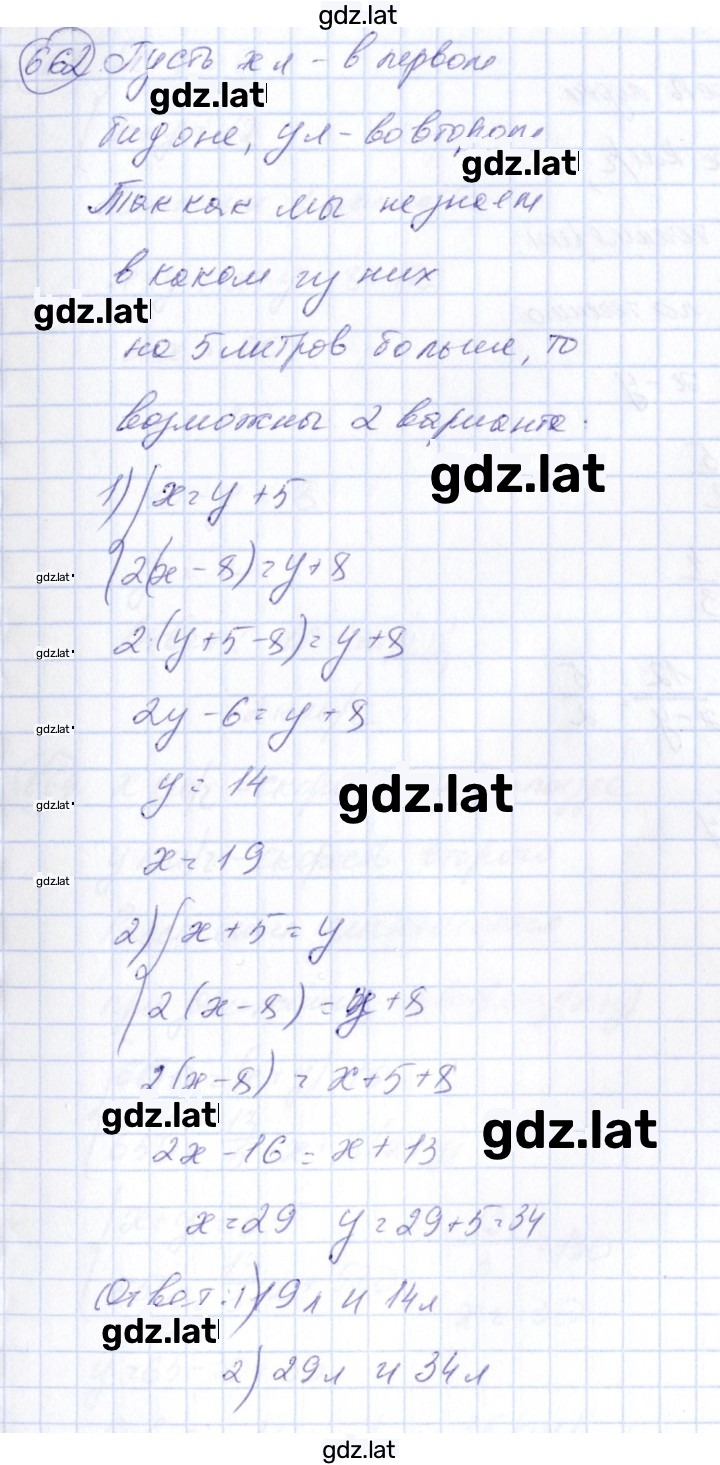 gdz.lat
662 Пусть x л - в первом
gdz.lat
бидоне, y л - во втором.
gdz.lat
Так как мы не знаем
в каком из них
gdz.lat
на 5 литров больше, то
возможны 2 варианта.
gdz.lat
1) { x = y + 5
gdz.lat
{ 2(x - 8) = y + 8
2·(y + 5 - 8) = y + 8
gdz.lat
2y - 6 = y + 8
gdz.lat
y = 14
gdz.lat
gdz.lat
x = 19
gdz.lat
2) { x + 5 = y
{ 2(x - 8) = y + 8
2(x - 8) = x + 5 + 8
gdz.lat
gdz.lat
2x - 16 = x + 13
x = 29 y = 29 + 5 = 34
Ответ: 1) 19 л и 14 л
gdz.lat
2) 29 л и 34 л
gdz.lat